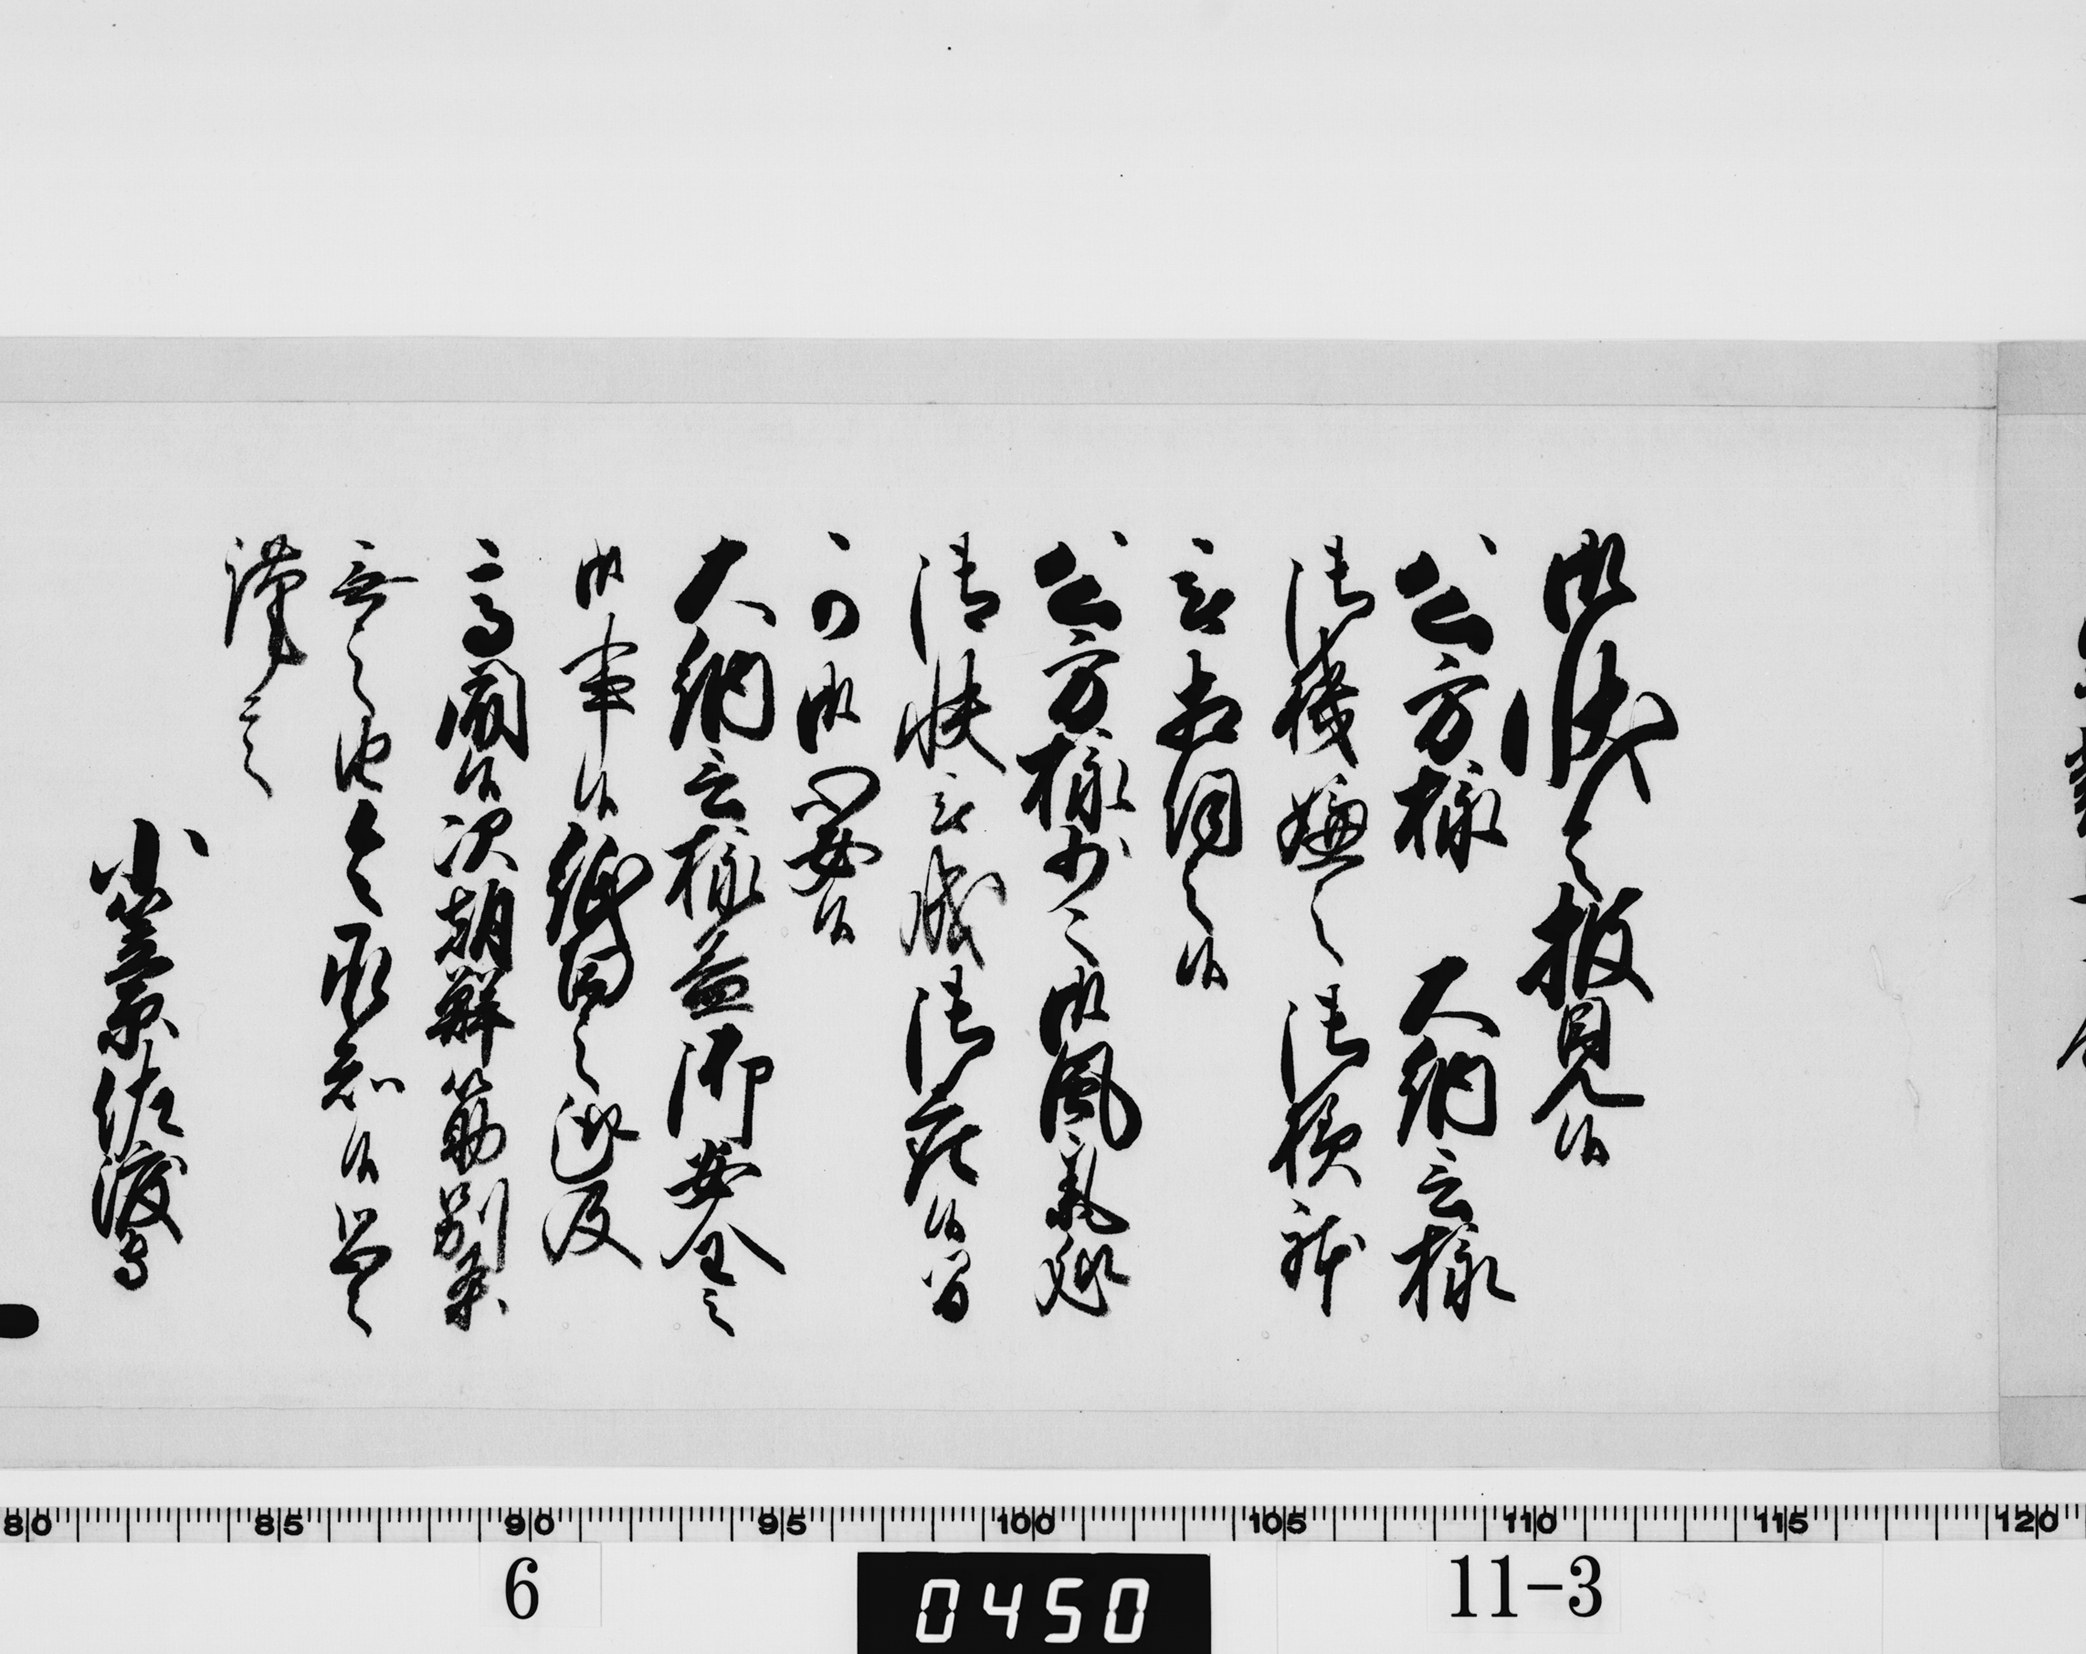 御状令披見候
公方様 大納言様
御機嫌之御様躰
被相伺之候
公方様少々御風氣
御快被成御座候間
可御心安候
大納言様益御安全之
御事候紙面之趣及
高聞候次朝鮮筋別条
無之由令承知候恐々
謹言
小笠原佐渡守
80 85 90 95 100 105 110 115 120
6
0450
11-3